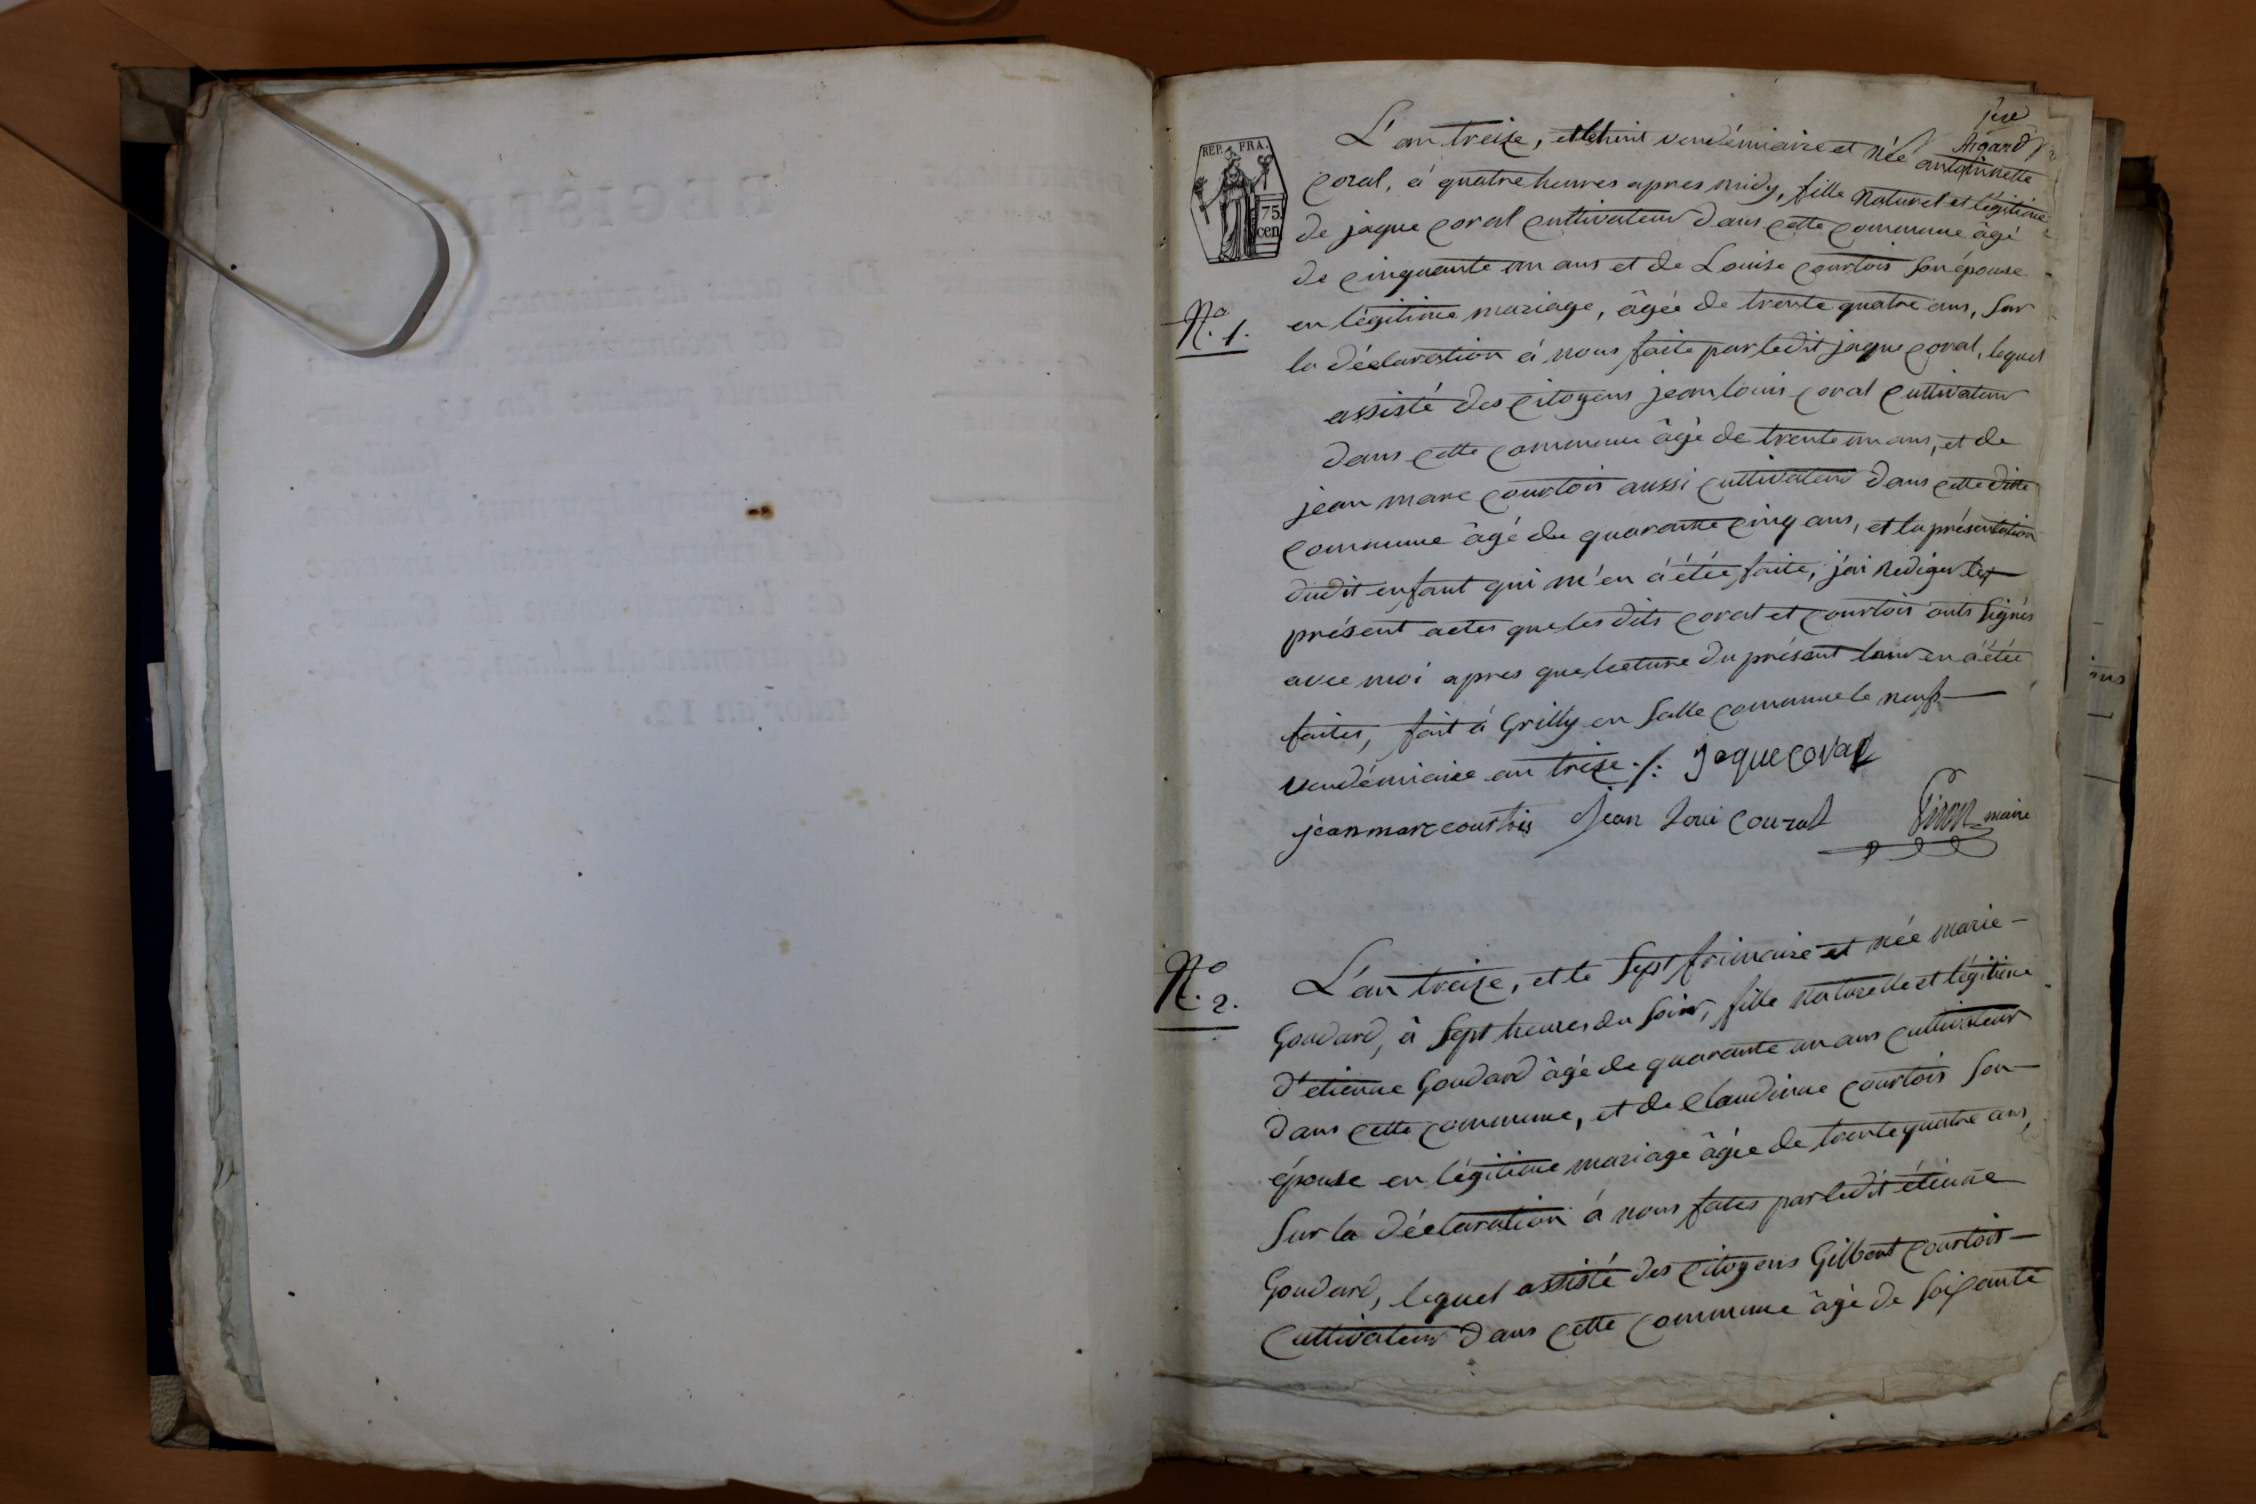 1ere
Rigard
REP. FRA.
75.
cen
L'an treize, et le huit vendémiaire et née antoinette
Coral, à quatre heures apres midy, fille naturel et légitime
de jaque Coral Cultivateur dans cette Commune âgé
de Cinquante un ans et de Louise Courtois son épouse
N.o 1.
en légitime mariage, âgée de trente quatre ans, sur
la déclaration à nous faite par ledit jaque Coral, lequel
assisté des Citoyens jean louis Coral Cultivateur
dans cette Commune âgé de trente un ans, et de
jean marc Courtois aussi Cultivateur dans cette ditte
Commune âgé de quarante Cinq ans, et la présentation
dudit enfant qui m'en à étée faite, j'ai rediger les
présent actes que les dits Coral et Courtois onts signés
avec moi apres que lecture du présent leur en à étée
faites, fait à Grilly en salle Commune le neuf
vendémiaire an treize ./. jaque Coral
jean marc courtois jean Loui Coural Piron maire
N.o 2.
L'an treize, et le sept frimaire et née marie
Goudard, à sept heures du soir, fille naturelle et légitime
d'etienne Goudard âgé de quarante un ans Cultivateur
dans cette Commune, et de Claudinne Courtois son
épouse en légitime mariage âgée de trente quatre ans,
sur la déclaration à nous fates par ledit étienne
Goudard, lequel assisté des Citoyens Gilbert Courtois
Cultivateur dans cette Commune âgé de soixante